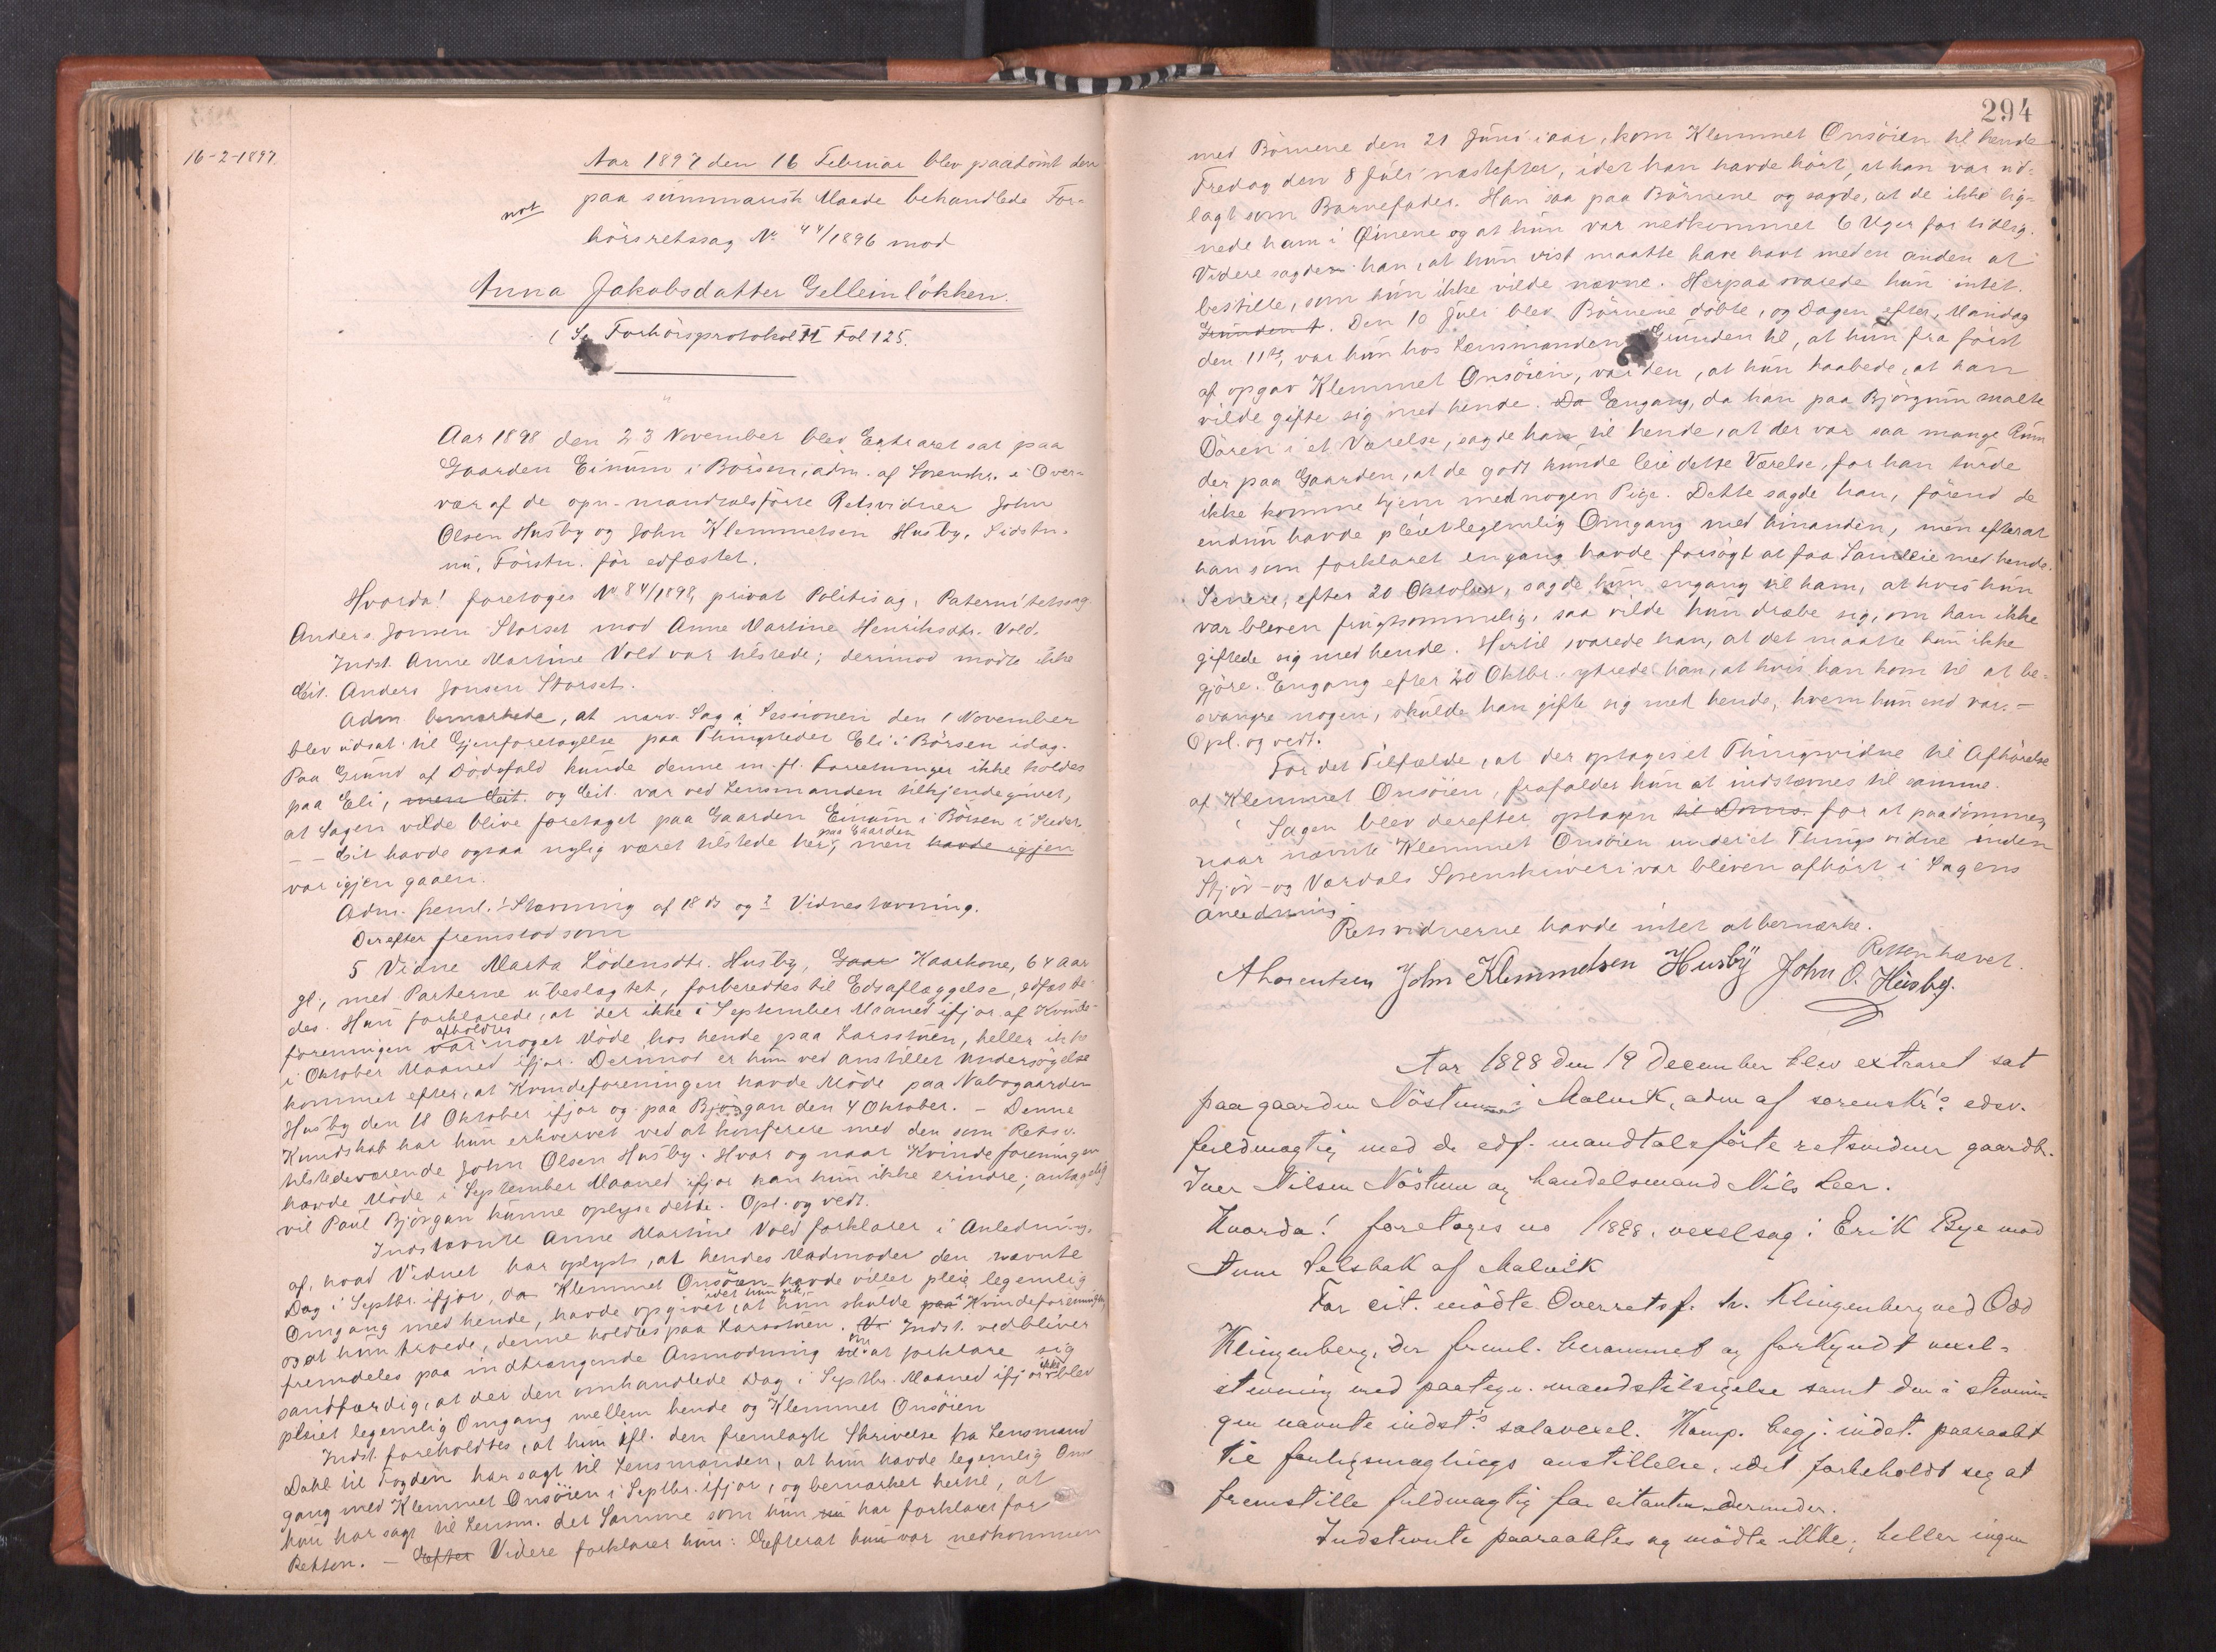 16-2-1897.
Aar 1897 den 16 Februar blev paadömt den
paa summarisk Maade behandlede For-
not
hörsretssag No 44/1896 mod
Anna Jakobsdatter Gelleinlökken.
(Se Forhörsprotokol II Fol 125.
Aar 1898 den 23 November blev Extraret sat paa
Gaarden Einum i Börsen, adm. af Sorenskr. i Over-
vær af de opn. mandtalsförte Retsvidner John
Olsen Husby og John Klemmetsen Husby. Sidstn.
nu, Förstn. för edfæstet.
Hvorda! foretoges No 84/1898, privat Politisag, Paternitetssag
Anders Jonsen Storset mod Anne Martine Henriksdtr. Vold.
Indst. Anne Martine Vold var tilstede; derimod mödte ikke
Cit. Anders Jonsen Storset.
Adm bemærkede, at nærv. Sag i Sessionen den 1 November
blev udsat til Gjenforetagelse paa Thingstedet Eli i Börsen idag.
Paa Grund af Dödsfald kunde denne m. fl. Forretninger ikke holdes
paa Eli, men Cit. og Cit. var ved Lensmanden tilkjendegivet,
at Sagen vilde blive foretaget paa Gaarden Einum i Börsen i Stedet.
– – Cit havde ogsaa nylig været tilstede her paa Gaarden, men havde igjen
var igjen gaaen.
Adm. freml. Stævning af 18 ds og Vidnestævning.
Derefter fremstod som
5 Vidne Marta Lödensdtr. Husby, Gaar Kaarkone, 64 Aar
gl., med Parterne ubeslægtet, forberedtes til Edsaflæggelse, edfæste-
des. Hun forklarede, at der ikke i September Maaned ifjor af Kvinde-
foreningen var afholdtes noget Möde hos hende paa Larsstuen, heller ikke
i Oktober Maaned ifjor. Derimod er hun ved anstillet Undersögelse
kommet efter, at Kvindeforeningen havde Möde paa Nabogaarden
Husby den 18 Oktober ifjor og paa Björgan den 4 Oktober. – Denne
Kundskab har hun erhvervet ved at konferere med den som Retsv.
tilstedeværende John Olsen Husby. Hvor og naar Kvindeforeningen
havde Möde i September Maaned ifjor kan hun ikke erindre; antagelig
vil Paul Björgan kunne oplyse dette. Opl. og vedt.
Indstævnte Anne Martine Vold forklarer i Anledning
af, hvad Vidnet har oplyst, at hendes Madmoder den nævnte
Dag i Septbr. ifjor, da Klemmet Onsöien havde villet pleie legemlig
Omgang med hende, havde opgivet, idet hun gik, at hun skulde paa i Kvindeforeningen
og at hun troede, denne holdtes paa Larsstuen. Indst. vedbliver
fremdeles paa indtrængende Anmodning til om at forklare sig
sandfærdig, at der den omhandlede Dag i Septbr. Maaned ifjor ikke blev
pleiet legemlig Omgang mellem hende og Klemmet Onsöien
Indst. foreholdtes, at hun ifl. den fremlagte Skrivelse fra Lensmand
Dahl til Fogden har sagt til Lensmanden, at hun havde legemlig Om-
gang med Klemmet Onsöien i Septbr. ifjor, og bemærker hertil, at
hun har sagt til Lensm. det Samme som hun nu har forklaret for
Retten. – Efter Videre forklarer hun: Efterat hun var nedkommen
294
med Börnene den 21 Juni iaar, kom Klemmet Onsöien til hende
Fredag den 8 Juli næstefter, idet han havde hört, at han var ud-
lagt som Barnefader. Han saa paa Börnene og sagde, at de ikke lig-
nede ham i Öinene og at hun var nedkommet 6 Uger for tidlig.
Videre sagde han, at hun vist maatte have havt med en anden at
bestille, som hun ikke vilde nævne. Herpaa svarede hun intet.
Grunden t. Den 10 Juli blev Börnene döbte, og Dagen efter, Mandag
den 11te, var hun hos Lensmanden. Grunden til, at hun fra först
af opgav Klemmet Onsöien, var den, at hun haabede, at han
vilde gifte sig med hende. Da Engang, da han paa Björgum malte
Dören i et Værelse, sagde han til hende, at der var saa mange Rum
der paa Gaarden, at de godt kunde leie dette Værelse, for han turde
ikke komme hjem med nogen Pige. Dette sagde han, förend de
endnu havde pleiet legemlig Omgang med hinanden, men efterat
han som forklaret engang havde forsögt at faa Samleie med hende.
Senere, efter 20 Oktober, sagde hun engang til ham, at hvis hun
var bleven frugtsommelig, saa vilde hun dræbe sig, om han ikke
giftede sig med hende. Hertil svarede han, at det maatte hun ikke
gjöre. Engang efter 20 Oktbr. ytrede han, at hvis han kom til at be-
svangre nogen, skulde han gifte sig med hende, hvem hun end var. –
Opl. og vedt.
For det Tilfælde, at der optages et Thingsvidne til Afhörelse
af Klemmet Onsöien, frafalder hun at indstævnes til samme.
Sagen blev derefter optagen til Doms. for at paadömmes,
naar nævnte Klemmet Onsöien under et Thingsvidne inden
Stjör- og Værdals Sorenskriveri var bleven afhört i Sagens
Anledning.
Retsvidnerne havde intet at bemærke.
Retten hævet.
A Lorentsen John Klemmetsen Husbÿ John O. Husby.
Aar 1898 den 19 December blev extraret sat
paa gaarden Nöstum i Malvik, adm af sorenskr's edsv.
fuldmægtig med de edf. mandtalsförte retsvidner gaardbr.
Iver Nilsen Nöstum og handelsmand Nils Leer.
Hvorda! foretoges no /1898, vexelsag: Erik Bye mod
Arne Selsbak af Malvik
For cit. mödte Overretssf. hr. Klingenberg ved Odd
Klingenberg, der freml. berammet og forkyndt vexel-
stevning med paategn. mændstilsigelse samt den i stevnin-
gen nævnte indst's solavexel. Komp. begj. indst. paaraabt
til forligsmæglings anstillelse, idet forbeholdt sig at
fremstille fuldmægtig for citanten derunder.
Indstevnte paaraabtes og mödte ikke; heller ingen